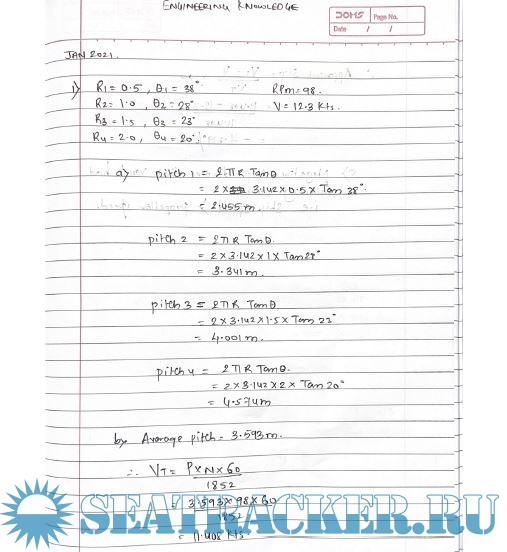 ENGINEERING KNOWLEDGE
DOMS Page No.
Date / /
JAN 2021.
1) R1 = 0.5 , θ1 = 38° RPm = 98.
R2 = 1.0 , θ2 = 28° V = 12.3 Kts.
R3 = 1.5 , θ3 = 23°
R4 = 2.0 , θ4 = 20°
a) pitch 1 = 2πR Tanθ
= 2 x 3.142 x 0.5 x Tan 38°.
= 2.455 m.
pitch 2 = 2πR Tanθ.
= 2 x 3.142 x 1 x Tan 28°
= 3.341 m.
pitch 3 = 2πR Tanθ
= 2 x 3.142 x 1.5 x Tan 23°
= 4.001 m.
pitch 4 = 2πR Tanθ.
= 2 x 3.142 x 2 x Tan 20°
= 4.574 m
b) Avarage pitch = 3.593 m.
∴ VT = P x N x 60
1852
= 3.593 x 98 x 60
1852
= 11.408 Kts.
SEATRACKER.RU